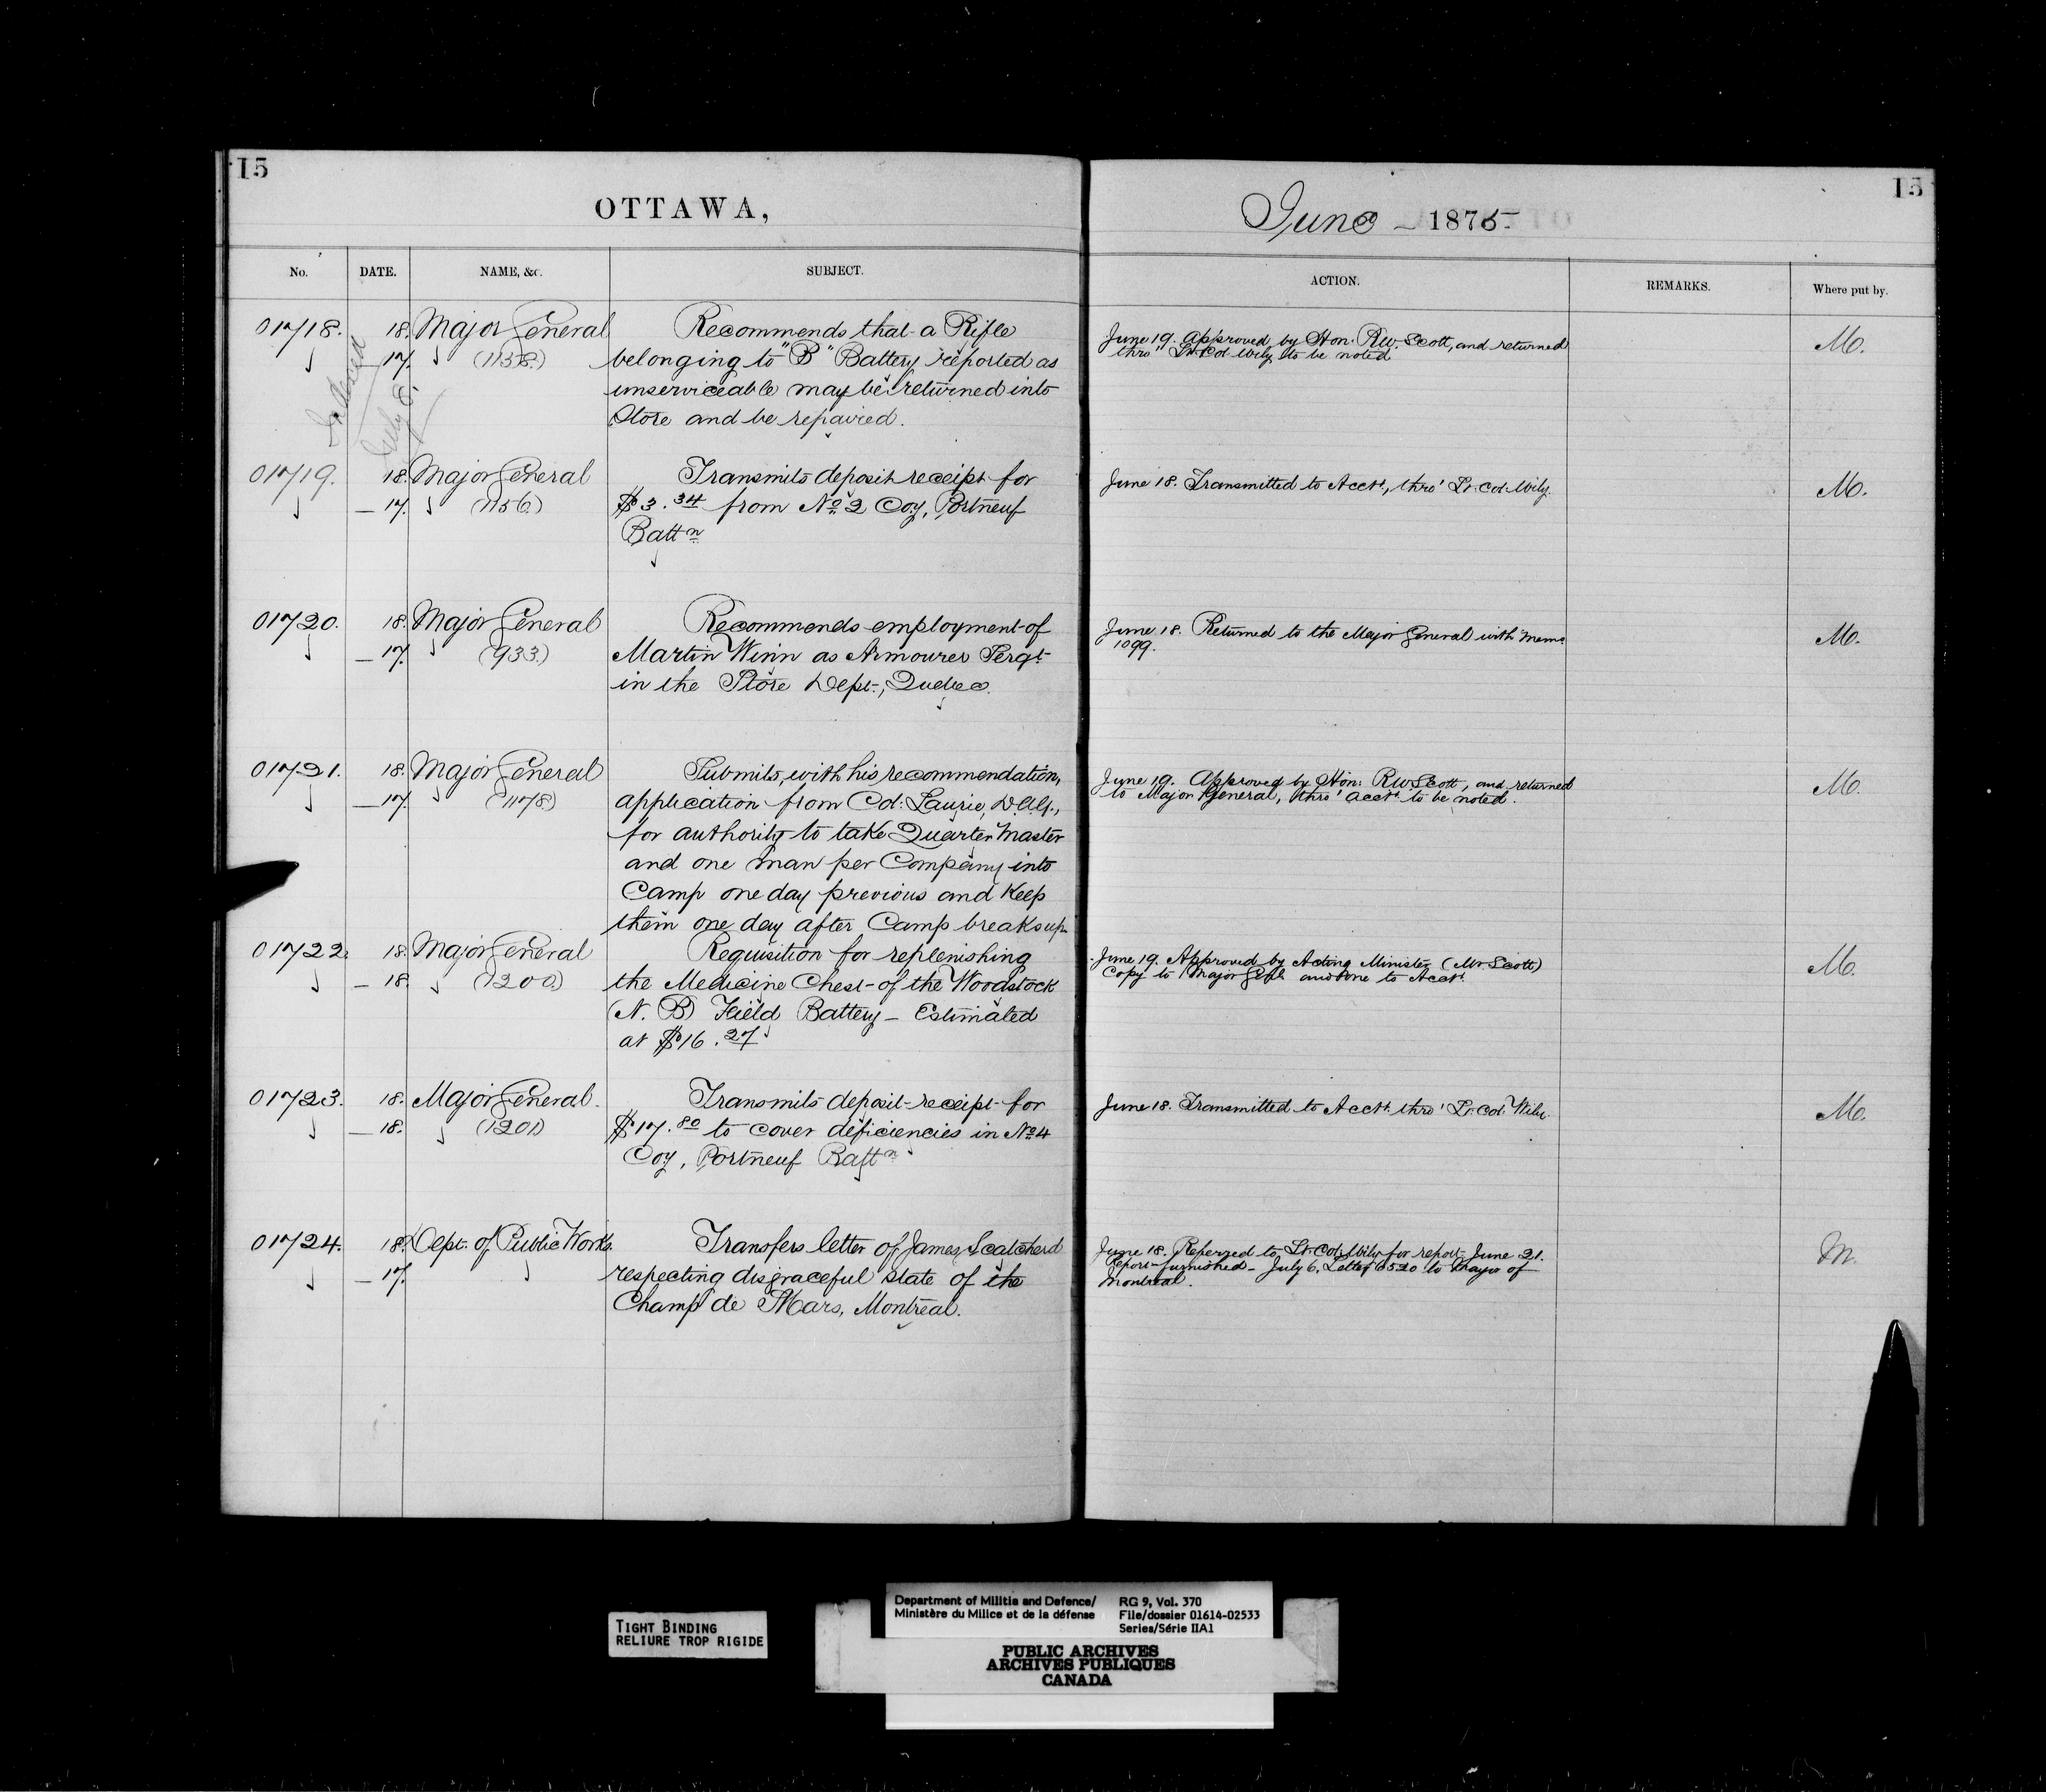 15
OTTAWA,
No. DATE. NAME, &c. SUBJECT.
01718. 18. Major General Recommends that a Rifle
17. (1138.) belonging to "B" Battery reported as
unserviceable may be returned into
Store and be repaired.
Indexed
July 8.
01719. 18. Major General Transmits deposit receipt for
— 17. (1156.) $3.34 from No. 2 Coy, Portneuf
Battn
01720. 18. Major General Recommends employment of
— 17. (933.) Martin Winn as Armourer Sergt
in the Store Dept., Quebec.
01721. 18. Major General Submits, with his recommendation,
— 17. (1178) application from Col: Laurie, D.A.G.,
for authority to take Quarter Master
and one man per Company into
Camp one day previous and Keep
them one day after Camp breaks up.
01722. 18. Major General Requisition for replenishing
— 18. (1200) the Medicine Chest of the Woodstock
(N. B) Field Battery — Estimated
at $16.27
01723. 18. Major General. Transmits deposit receipt for
— 18. (1201) $17.80 to cover deficiencies in No 4
Coy, Portneuf Battn
01724. 18. Dept. of Public Works. Transfers letter of James Scatcherd
— 17. respecting disgraceful state of the
Champ de Mars, Montreal.
15
June — 1875
ACTION. REMARKS. Where put by.
June 19. Approved by Hon. R.W. Scott, and returned M.
thro' Lt. Col Wily to be noted
June 18. Transmitted to Acct., thro' Lt. Col. Wily. M.
June 18. Returned to the Major General with Memo M.
1099.
June 19. Approved by Hon: RW Scott, and returned M.
to Major General, thro' Acct. to be noted.
June 19. Approved by Acting Minister (Mr Scott) M.
Copy to Major Genl and one to Acct.
June 18. Transmitted to Acct. thro' Lt. Col. Wily M.
June 18. Referred to Lt. Col. Wily for report June 21. M.
Report furnished — July 6, Letter 6520 to Mayor of
Montreal.
TIGHT BINDING
RELIURE TROP RIGIDE
Department of Militia and Defence/ RG 9, Vol. 370
Ministère du Milice et de la défense File/dossier 01614-02533
Series/Série IIA1
PUBLIC ARCHIVES
ARCHIVES PUBLIQUES
CANADA